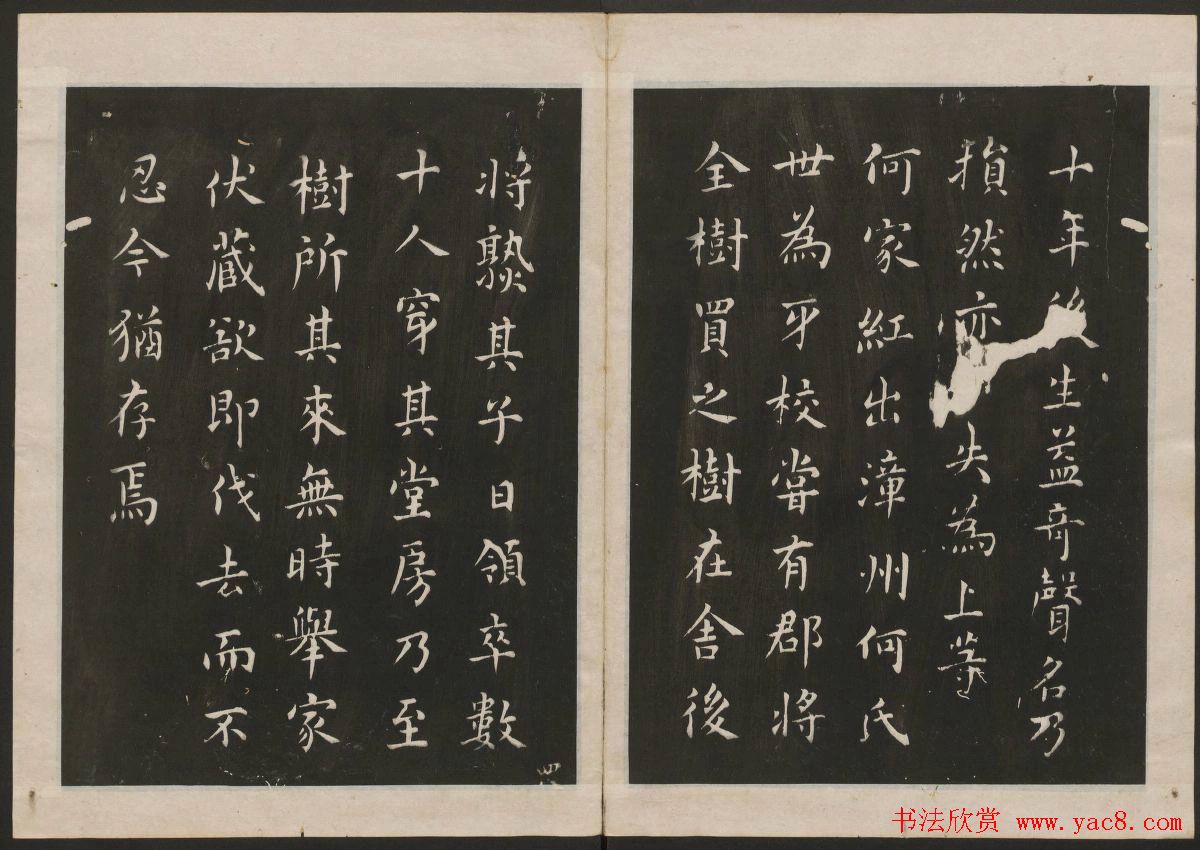 十年後生益竒聲名乃
損然亦失為上等
何家紅出漳州何氏
世為牙校嘗有郡將
全樹買之樹在舍後
將熟其子日領卒數
十人穿其堂房乃至
樹所其來無時舉家
伏藏欲即伐去而不
忍今猶存焉
书法欣赏 www.yac8.com